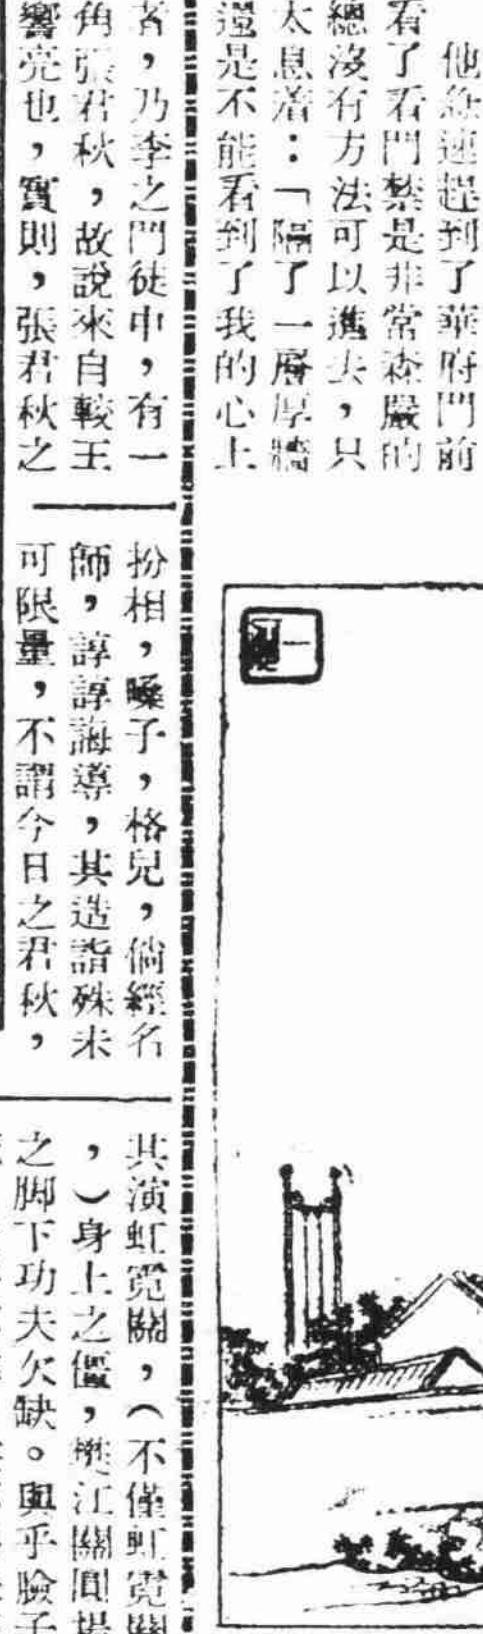 他急速趕到了華府門前
看了看門禁是非常森嚴的
總沒有方法可以進去，只
太息着：「隔了一層厚牆
還是不能看到了我的心上
者，乃李之門徒中，有一
角張君秋，故說來自較王
響亮也，實則，張君秋之
扮相，嗓子，格兒，倘經名
師，諄諄誨導，其造詣殊未
可限量，不謂今日之君秋，
其演虹霓關，（不僅虹霓關
，）身上之僵，樊江關圓場
之脚下功夫欠缺。與乎臉子